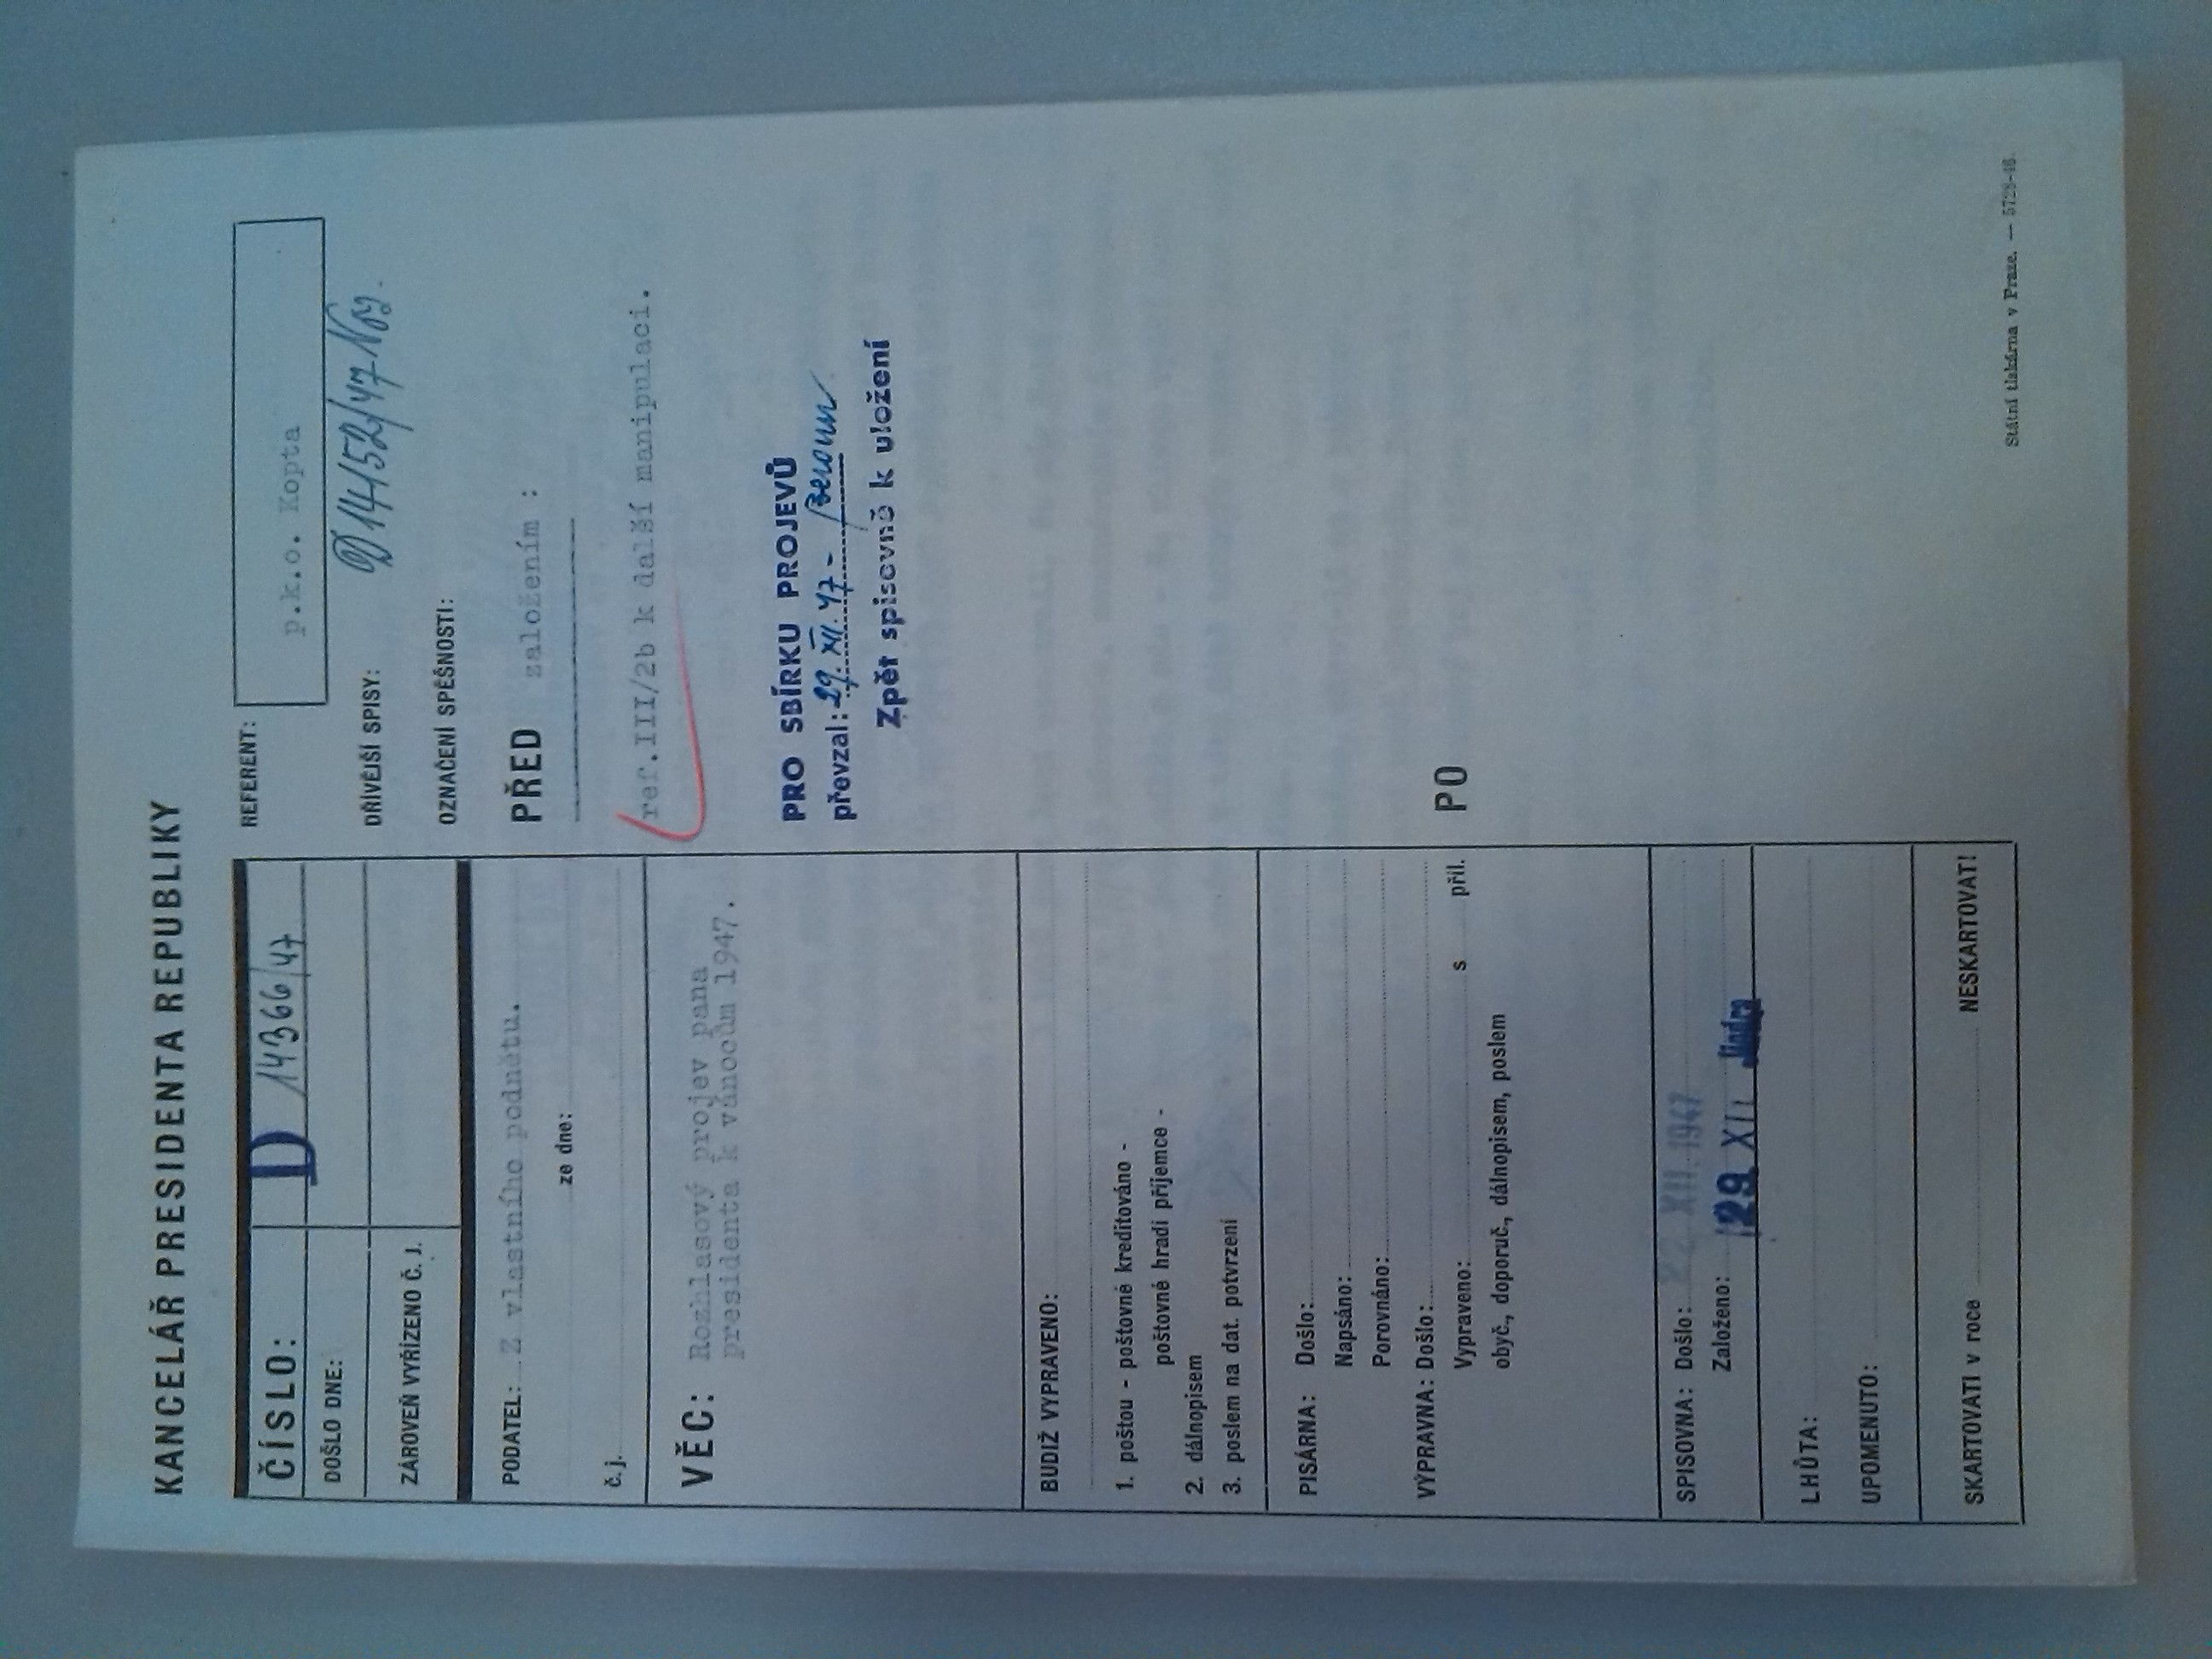 KANCELÁŘ PRESIDENTA REPUBLIKY
ČÍSLO: D 14366/47
DOŠLO DNE:
ZÁROVEŇ VYŘÍZENO Č. J.
PODATEL: Z vlastního podnětu.
ze dne:
č. j.
VĚC: Rozhlasový projev pana
presidenta k vánocům 1947.
BUDIŽ VYPRAVENO:
1. poštou - poštovné kreditováno -
poštovné hradí příjemce -
2. dálnopisem
3. poslem na dat. potvrzení
PISÁRNA: Došlo:
Napsáno:
Porovnáno:
VÝPRAVNA: Došlo:
Vypraveno: s příl.
obyč., doporuč., dálnopisem, poslem
SPISOVNA: Došlo: XII. 1947
Založeno: 29. XII Jindra
LHŮTA:
UPOMENUTO:
SKARTOVATI v roce NESKARTOVAT!
REFERENT: p.k.o. Kopta
DŘÍVĚJŠÍ SPISY: D 14152/47
OZNAČENÍ SPĚŠNOSTI:
PŘED založením :
ref.III/2b k další manipulaci.
PRO SBÍRKU PROJEVŮ
převzal: 29. XII. 47 -
Zpět spisovně k uložení
PO
Státní tiskárna v Praze. — 5723-46.